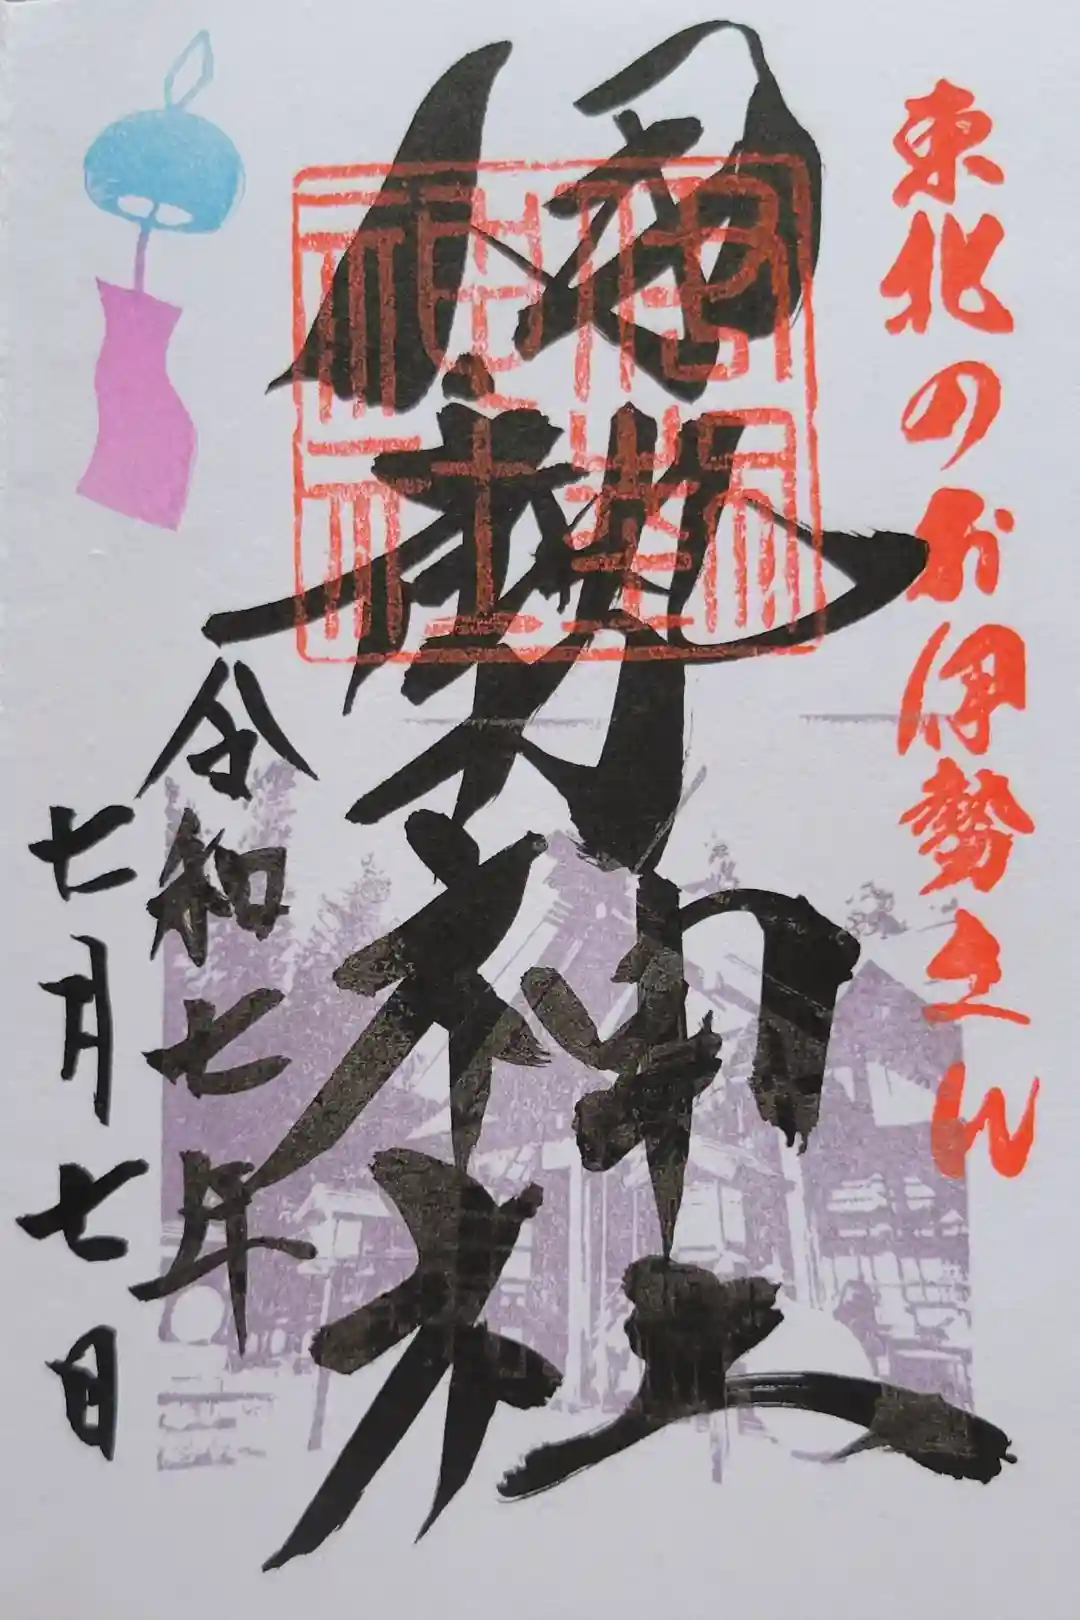 東北のお伊勢さん
伊勢神社
令和七年
七月七日